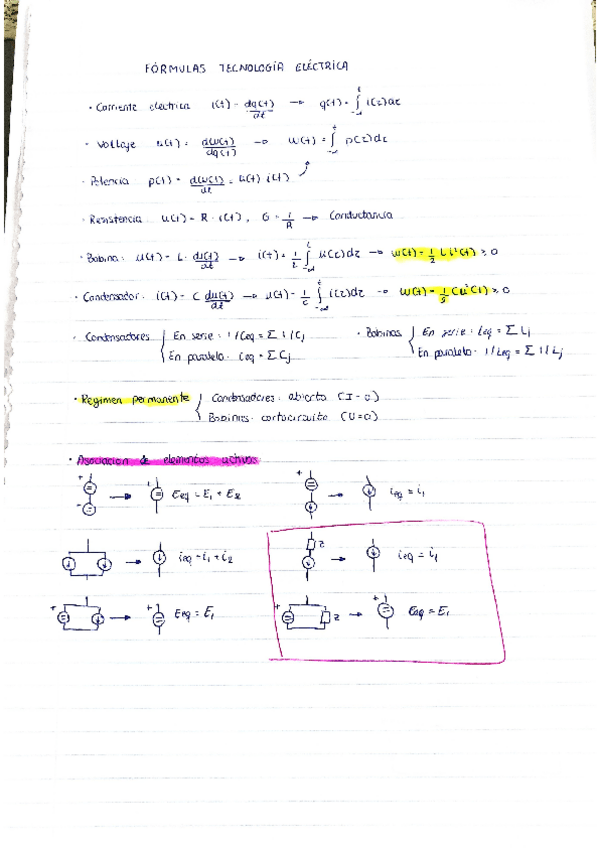 FÓRMULAS TECNOLOGÍA ELÉCTRICA
· Corriente eléctrica i(t) = dq(t)/dt → q(t) = ∫_{-∞}^{t} i(τ)dτ
· Voltaje u(t) = dw(t)/dq(t) → w(t) = ∫_{-∞}^{t} p(τ)dτ
· Potencia p(t) = dw(t)/dt = u(t) i(t)
· Resistencia u(t) = R · i(t), G = 1/R → Conductancia
· Bobina: u(t) = L · di(t)/dt → i(t) = 1/L ∫_{-∞}^{t} u(τ)dτ → w(t) = 1/2 L i²(t) ≥ 0
· Condensador: i(t) = C du(t)/dt → u(t) = 1/C ∫_{-∞}^{t} i(τ)dτ → w(t) = 1/2 C u²(t) ≥ 0
· Condensadores { En serie: 1/Ceq = Σ 1/Cj · Bobinas { En serie: Leq = Σ Lj
En paralelo: Ceq = Σ Cj En paralelo: 1/Leq = Σ 1/Lj
· Régimen permanente { Condensadores: abierto (I=0)
Bobinas: cortocircuito (U=0)
· Asociación de elementos activos
+ - → + Eeq = E1 + E2 + → ieq = i1
→ ieq = i1 + i2 Z → ieq = i1
+ → + Eeq = E1 + Z → + Eeq = E1